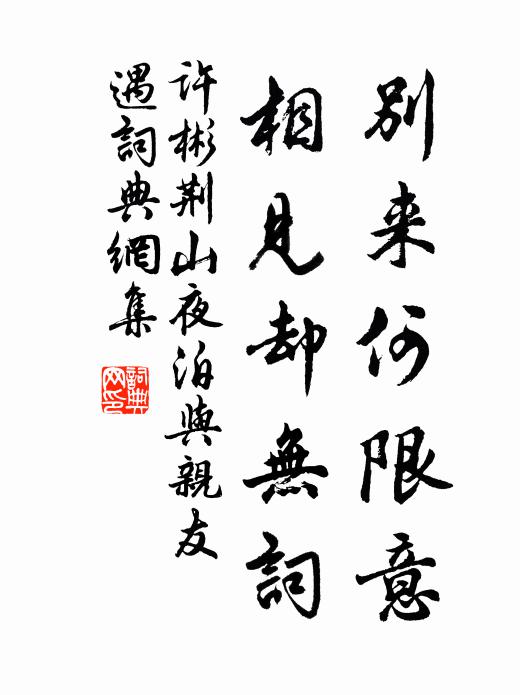 别来何限意
相見却無詞
许彬荆山夜泊與親友
遇詞典網集
詞典
网印